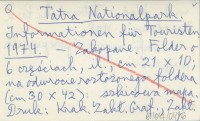 Tatra Nationalpark.
Informationen für Touristen
1974. - Zakopane. Folder o
6 częściach, il. cm 21 x 10;
na odwrocie rozłożonego foldera
(cm 30 x 42): szkicowa mapa.
Druk: Krak. Zakł. Graf., Zakł.